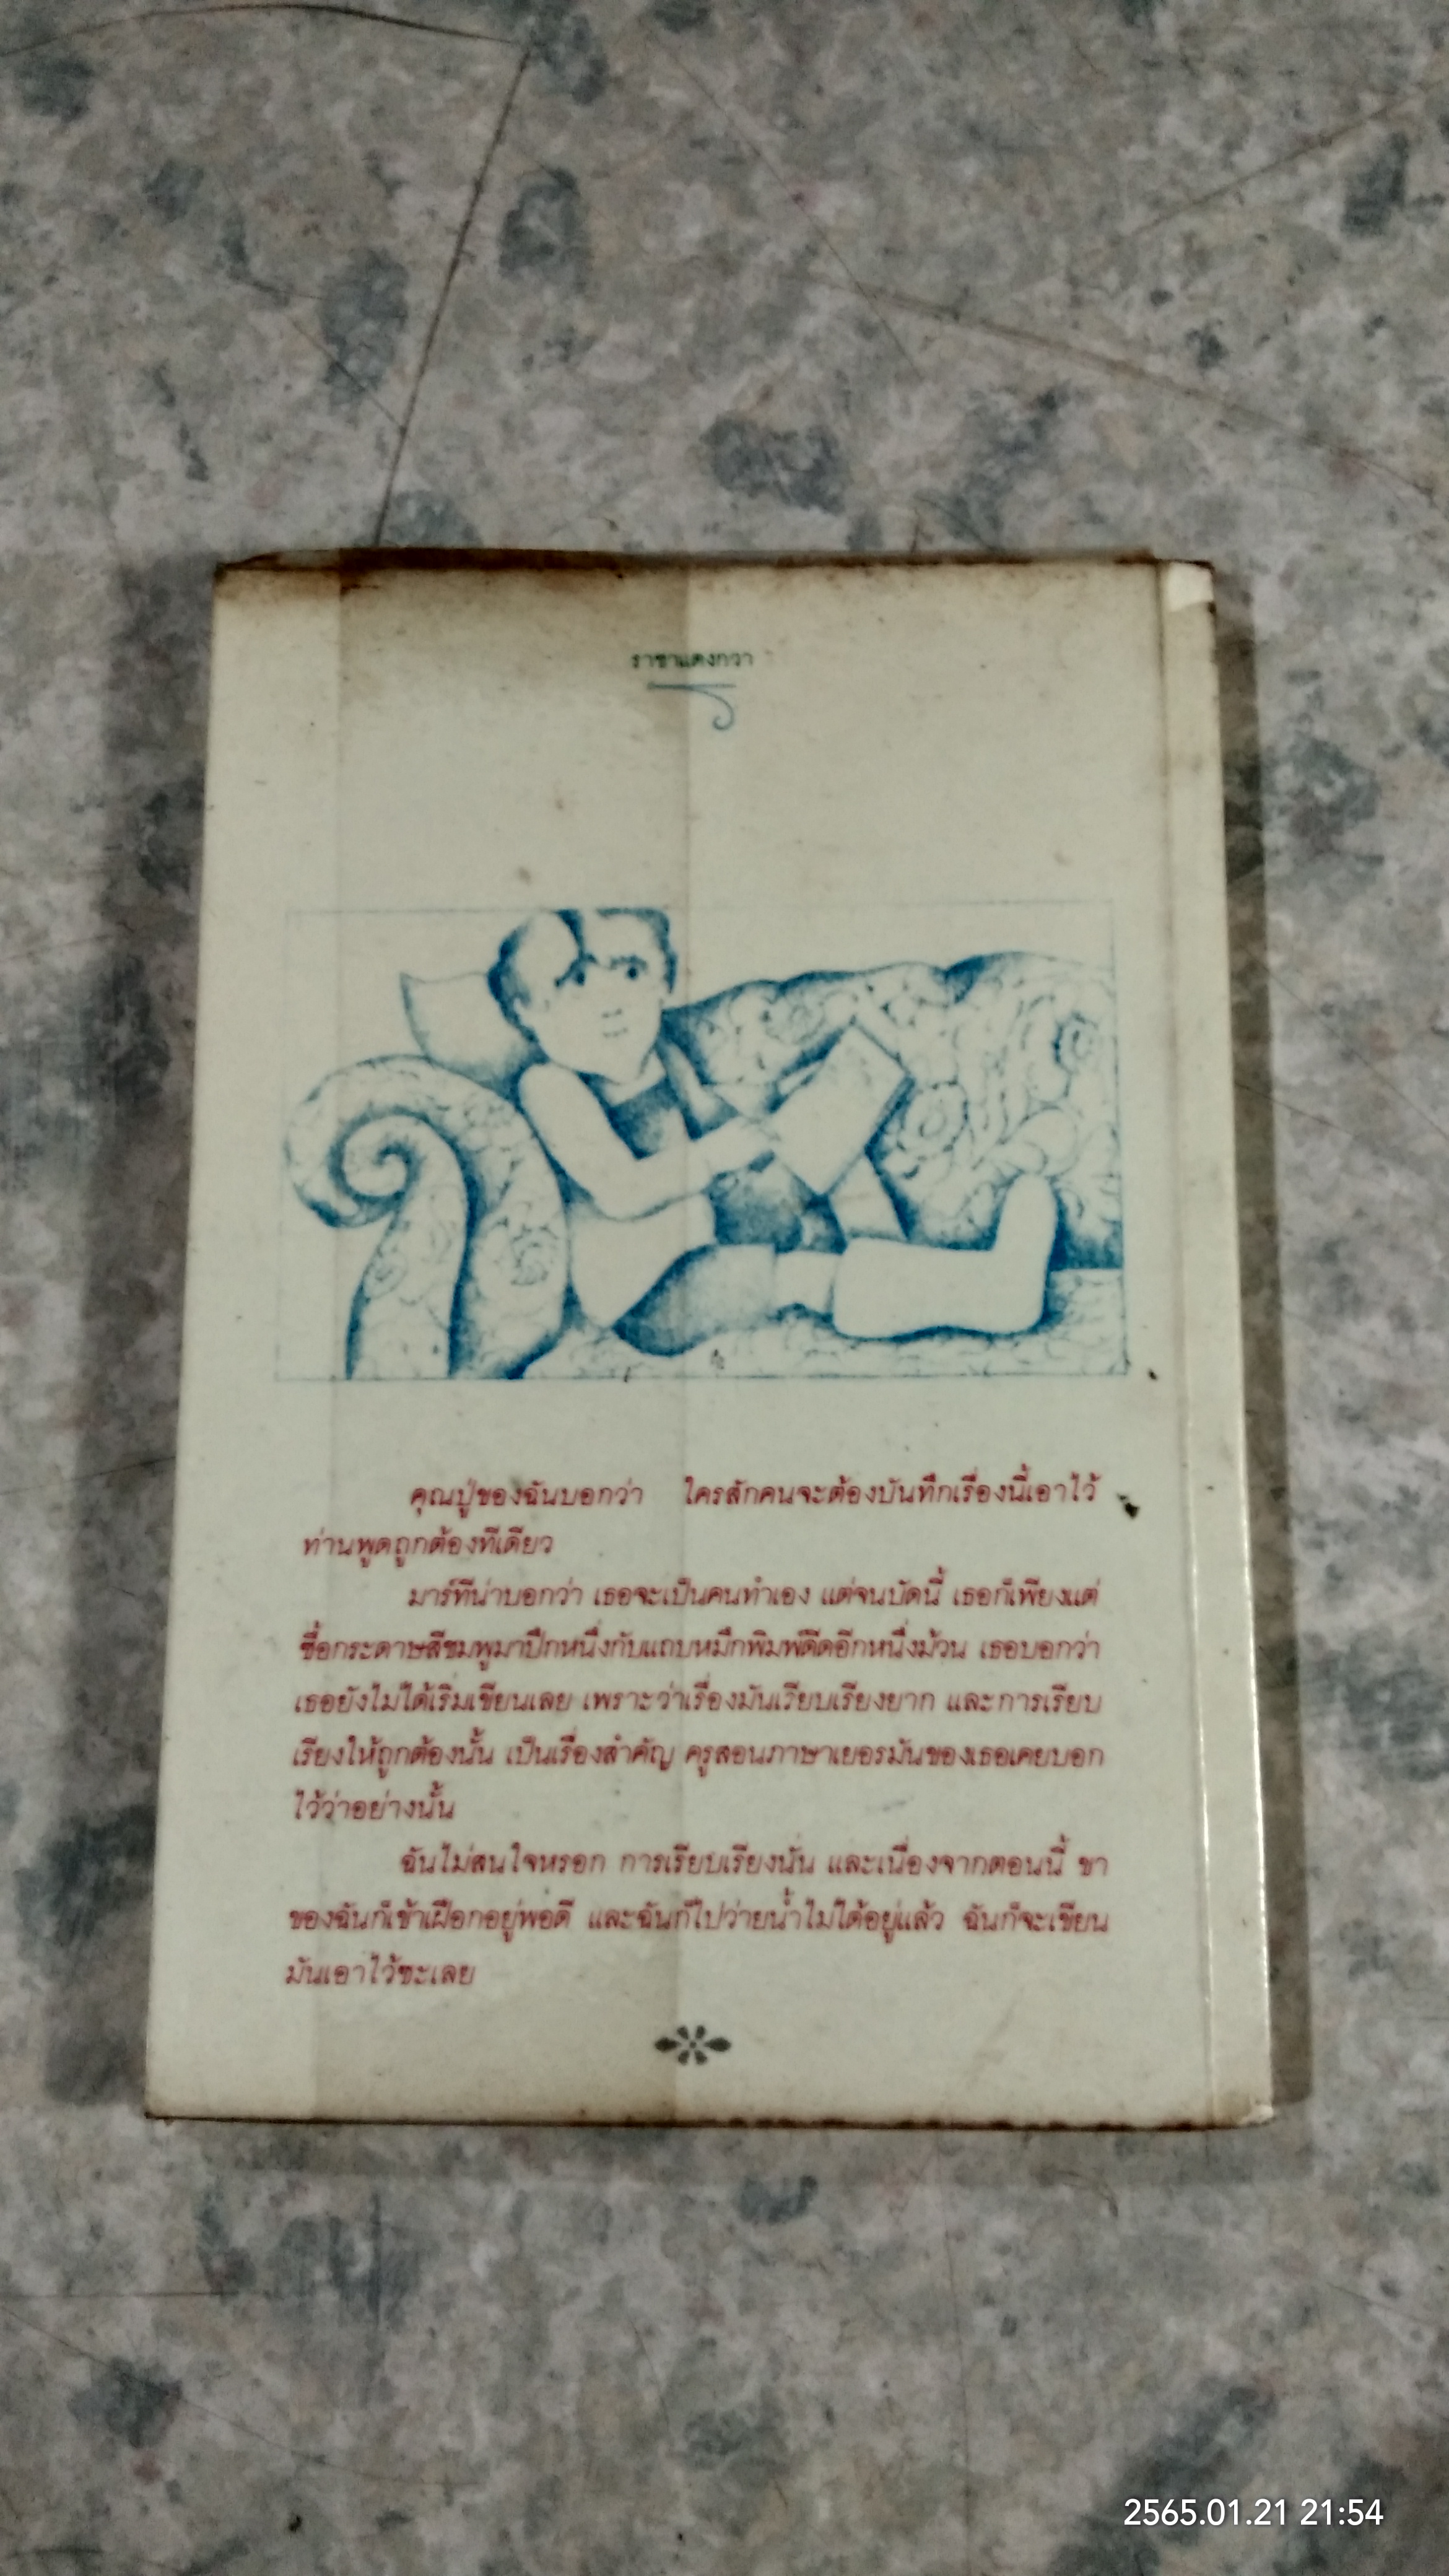 ราชาแตงกวา
คุณปู่ของฉันบอกว่า ใครสักคนจะต้องบันทึกเรื่องนี้เอาไว้
ท่านพูดถูกต้องทีเดียว
มาร์ทีน่าบอกว่า เธอจะเป็นคนทำเอง แต่จนบัดนี้ เธอก็เพียงแต่
ซื้อกระดาษสีชมพูมาปึกหนึ่งกับแถบหมึกพิมพ์ดีดอีกหนึ่งม้วน เธอบอกว่า
เธอยังไม่ได้เริ่มเขียนเลย เพราะว่าเรื่องมันเรียบเรียงยาก และการเรียบ
เรียงให้ถูกต้องนั้น เป็นเรื่องสำคัญ ครูสอนภาษาเยอรมันของเธอเคยบอก
ไว้ว่าอย่างนั้น
ฉันไม่สนใจหรอก การเรียบเรียงนั่น และเนื่องจากตอนนี้ ขา
ของฉันก็เข้าเฝือกอยู่พอดี และฉันก็ไปว่ายน้ำไม่ได้อยู่แล้ว ฉันก็จะเขียน
มันเอาไว้ซะเลย
2565.01.21 21:54